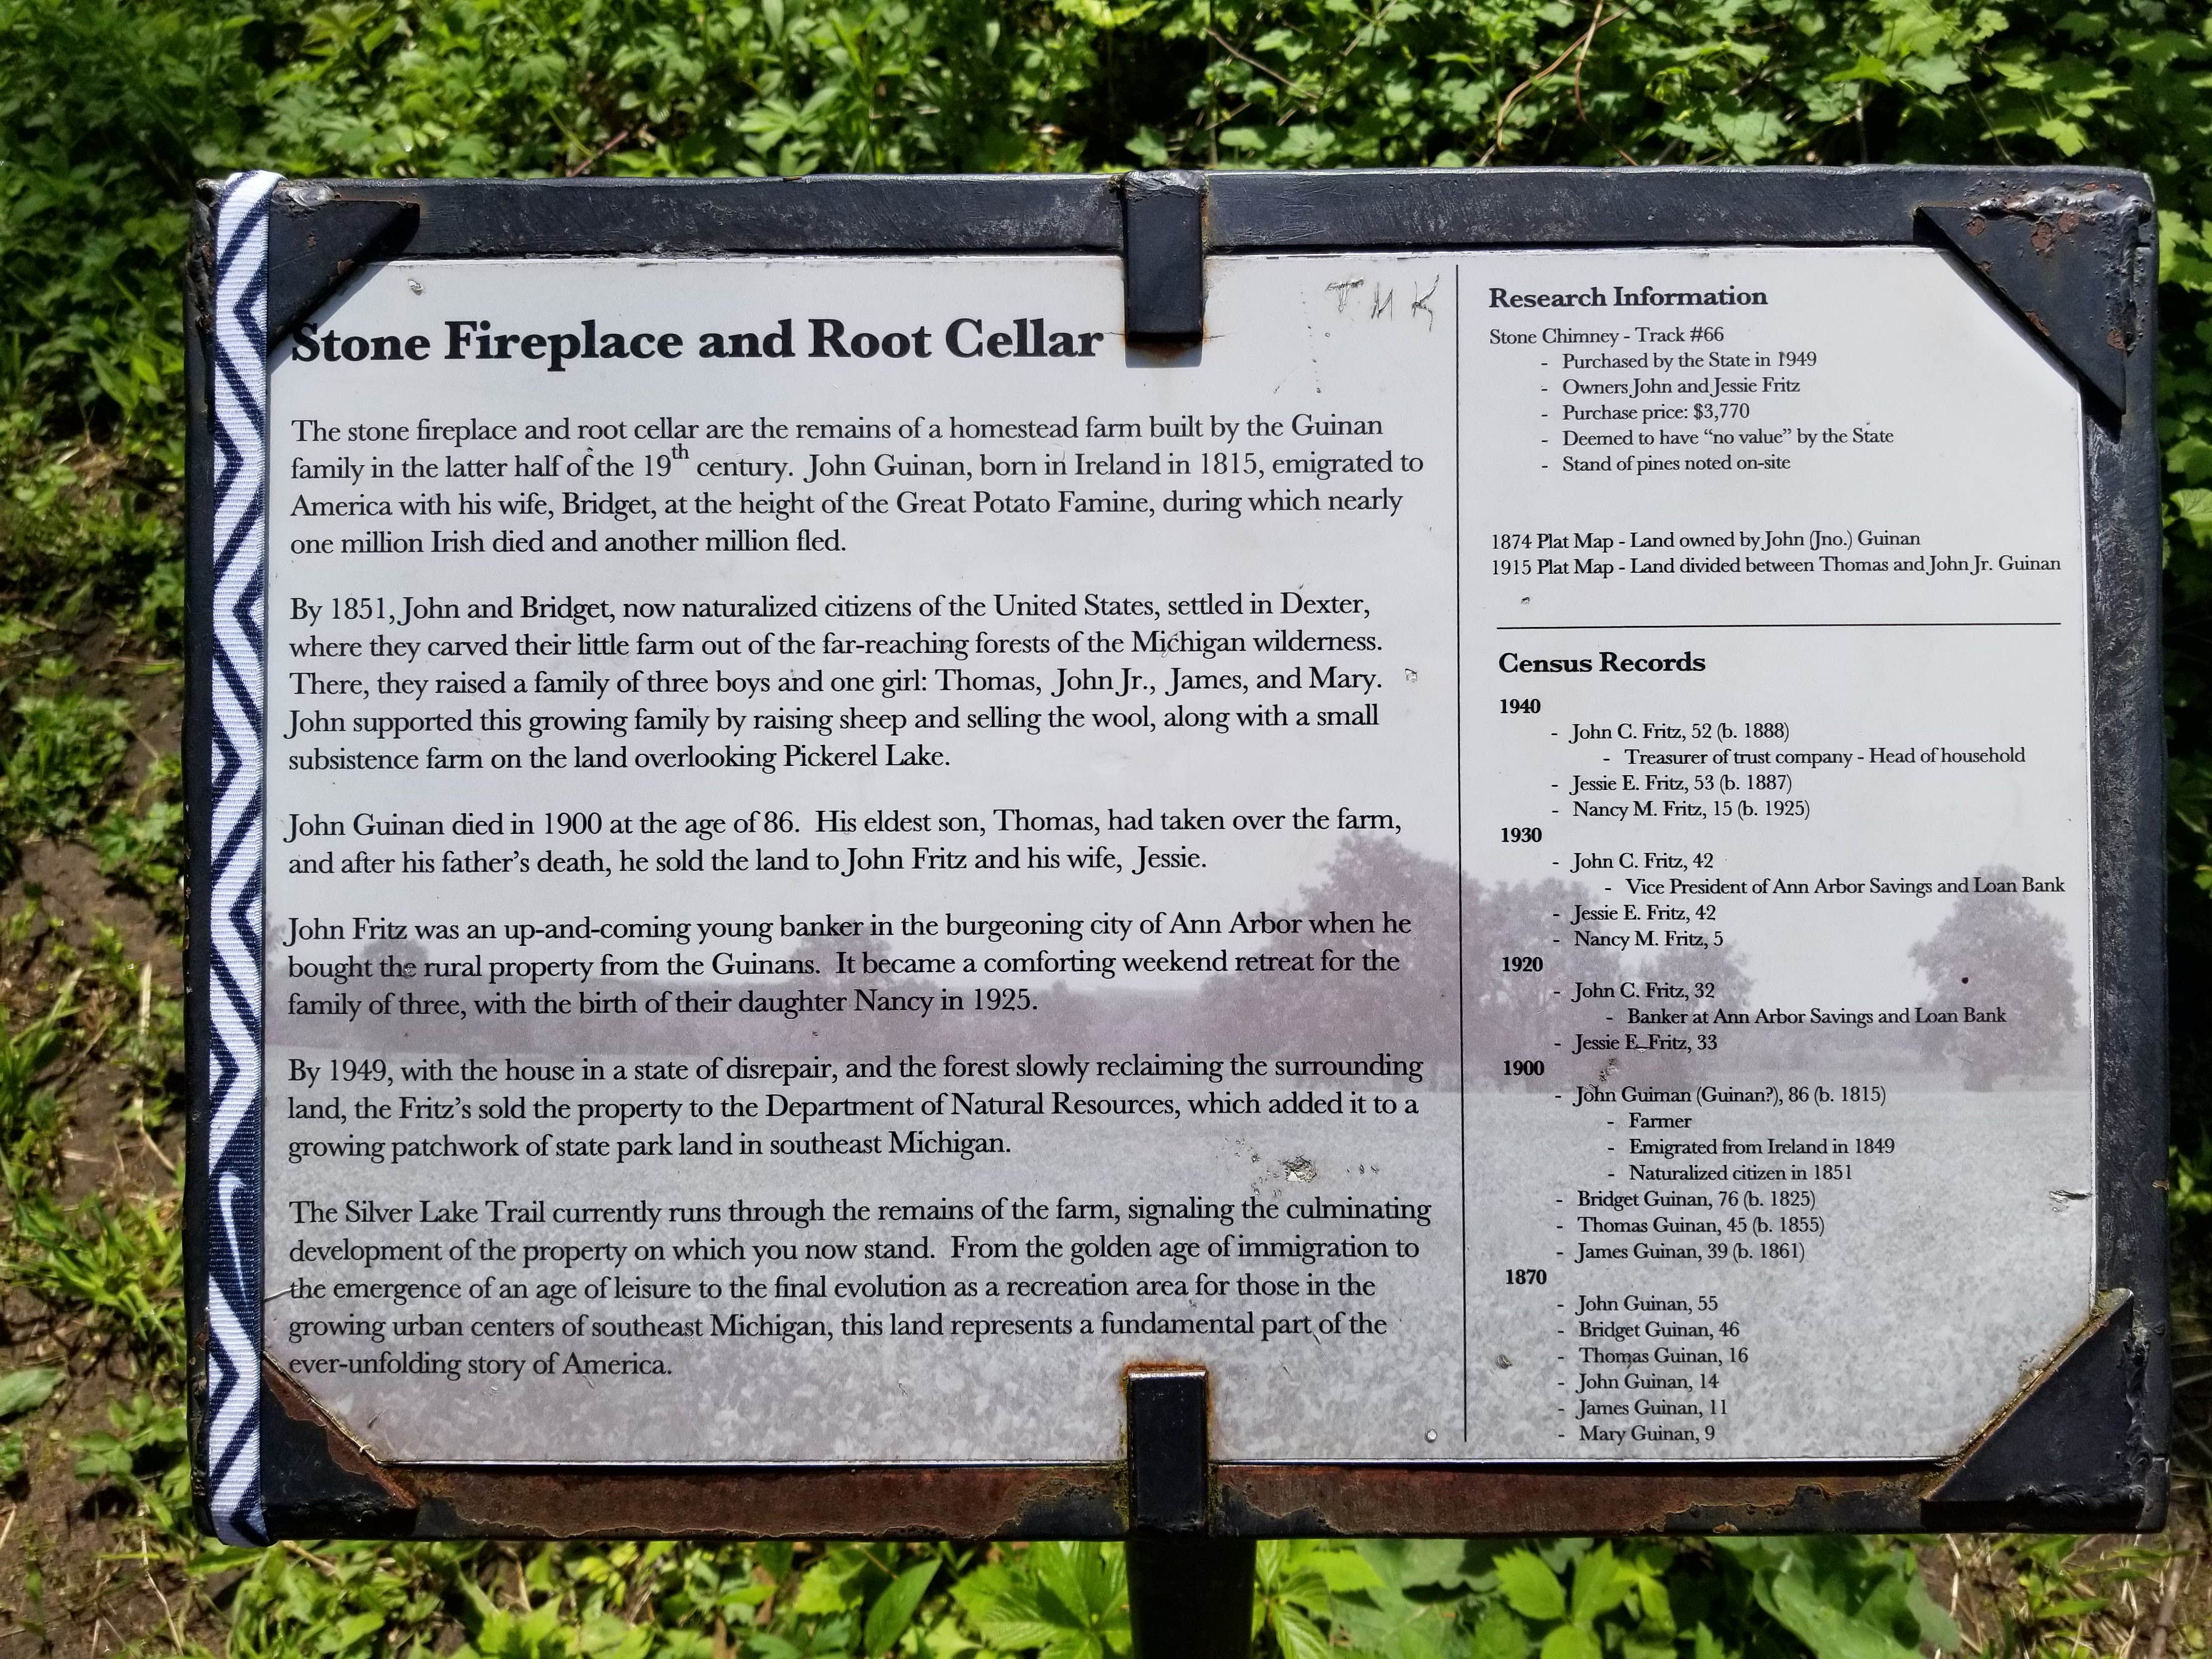 Stone Fireplace and Root Cellar
TMK
The stone fireplace and root cellar are the remains of a homestead farm built by the Guinan
family in the latter half of the 19th century. John Guinan, born in Ireland in 1815, emigrated to
America with his wife, Bridget, at the height of the Great Potato Famine, during which nearly
one million Irish died and another million fled.
By 1851, John and Bridget, now naturalized citizens of the United States, settled in Dexter,
where they carved their little farm out of the far-reaching forests of the Michigan wilderness.
There, they raised a family of three boys and one girl: Thomas, John Jr., James, and Mary.
John supported this growing family by raising sheep and selling the wool, along with a small
subsistence farm on the land overlooking Pickerel Lake.
John Guinan died in 1900 at the age of 86. His eldest son, Thomas, had taken over the farm,
and after his father's death, he sold the land to John Fritz and his wife, Jessie.
John Fritz was an up-and-coming young banker in the burgeoning city of Ann Arbor when he
bought the rural property from the Guinans. It became a comforting weekend retreat for the
family of three, with the birth of their daughter Nancy in 1925.
By 1949, with the house in a state of disrepair, and the forest slowly reclaiming the surrounding
land, the Fritz's sold the property to the Department of Natural Resources, which added it to a
growing patchwork of state park land in southeast Michigan.
The Silver Lake Trail currently runs through the remains of the farm, signaling the culminating
development of the property on which you now stand. From the golden age of immigration to
the emergence of an age of leisure to the final evolution as a recreation area for those in the
growing urban centers of southeast Michigan, this land represents a fundamental part of the
ever-unfolding story of America.
Research Information
Stone Chimney - Track #66
- Purchased by the State in 1949
- Owners John and Jessie Fritz
- Purchase price: $3,770
- Deemed to have "no value" by the State
- Stand of pines noted on-site
1874 Plat Map - Land owned by John (Jno.) Guinan
1915 Plat Map - Land divided between Thomas and John Jr. Guinan
Census Records
1940
- John C. Fritz, 52 (b. 1888)
- Treasurer of trust company - Head of household
- Jessie E. Fritz, 53 (b. 1887)
- Nancy M. Fritz, 15 (b. 1925)
1930
- John C. Fritz, 42
- Vice President of Ann Arbor Savings and Loan Bank
- Jessie E. Fritz, 42
- Nancy M. Fritz, 5
1920
- John C. Fritz, 32
- Banker at Ann Arbor Savings and Loan Bank
- Jessie E. Fritz, 33
1900
- John Guiman (Guinan?), 86 (b. 1815)
- Farmer
- Emigrated from Ireland in 1849
- Naturalized citizen in 1851
- Bridget Guinan, 76 (b. 1825)
- Thomas Guinan, 45 (b. 1855)
- James Guinan, 39 (b. 1861)
1870
- John Guinan, 55
- Bridget Guinan, 46
- Thomas Guinan, 16
- John Guinan, 14
- James Guinan, 11
- Mary Guinan, 9